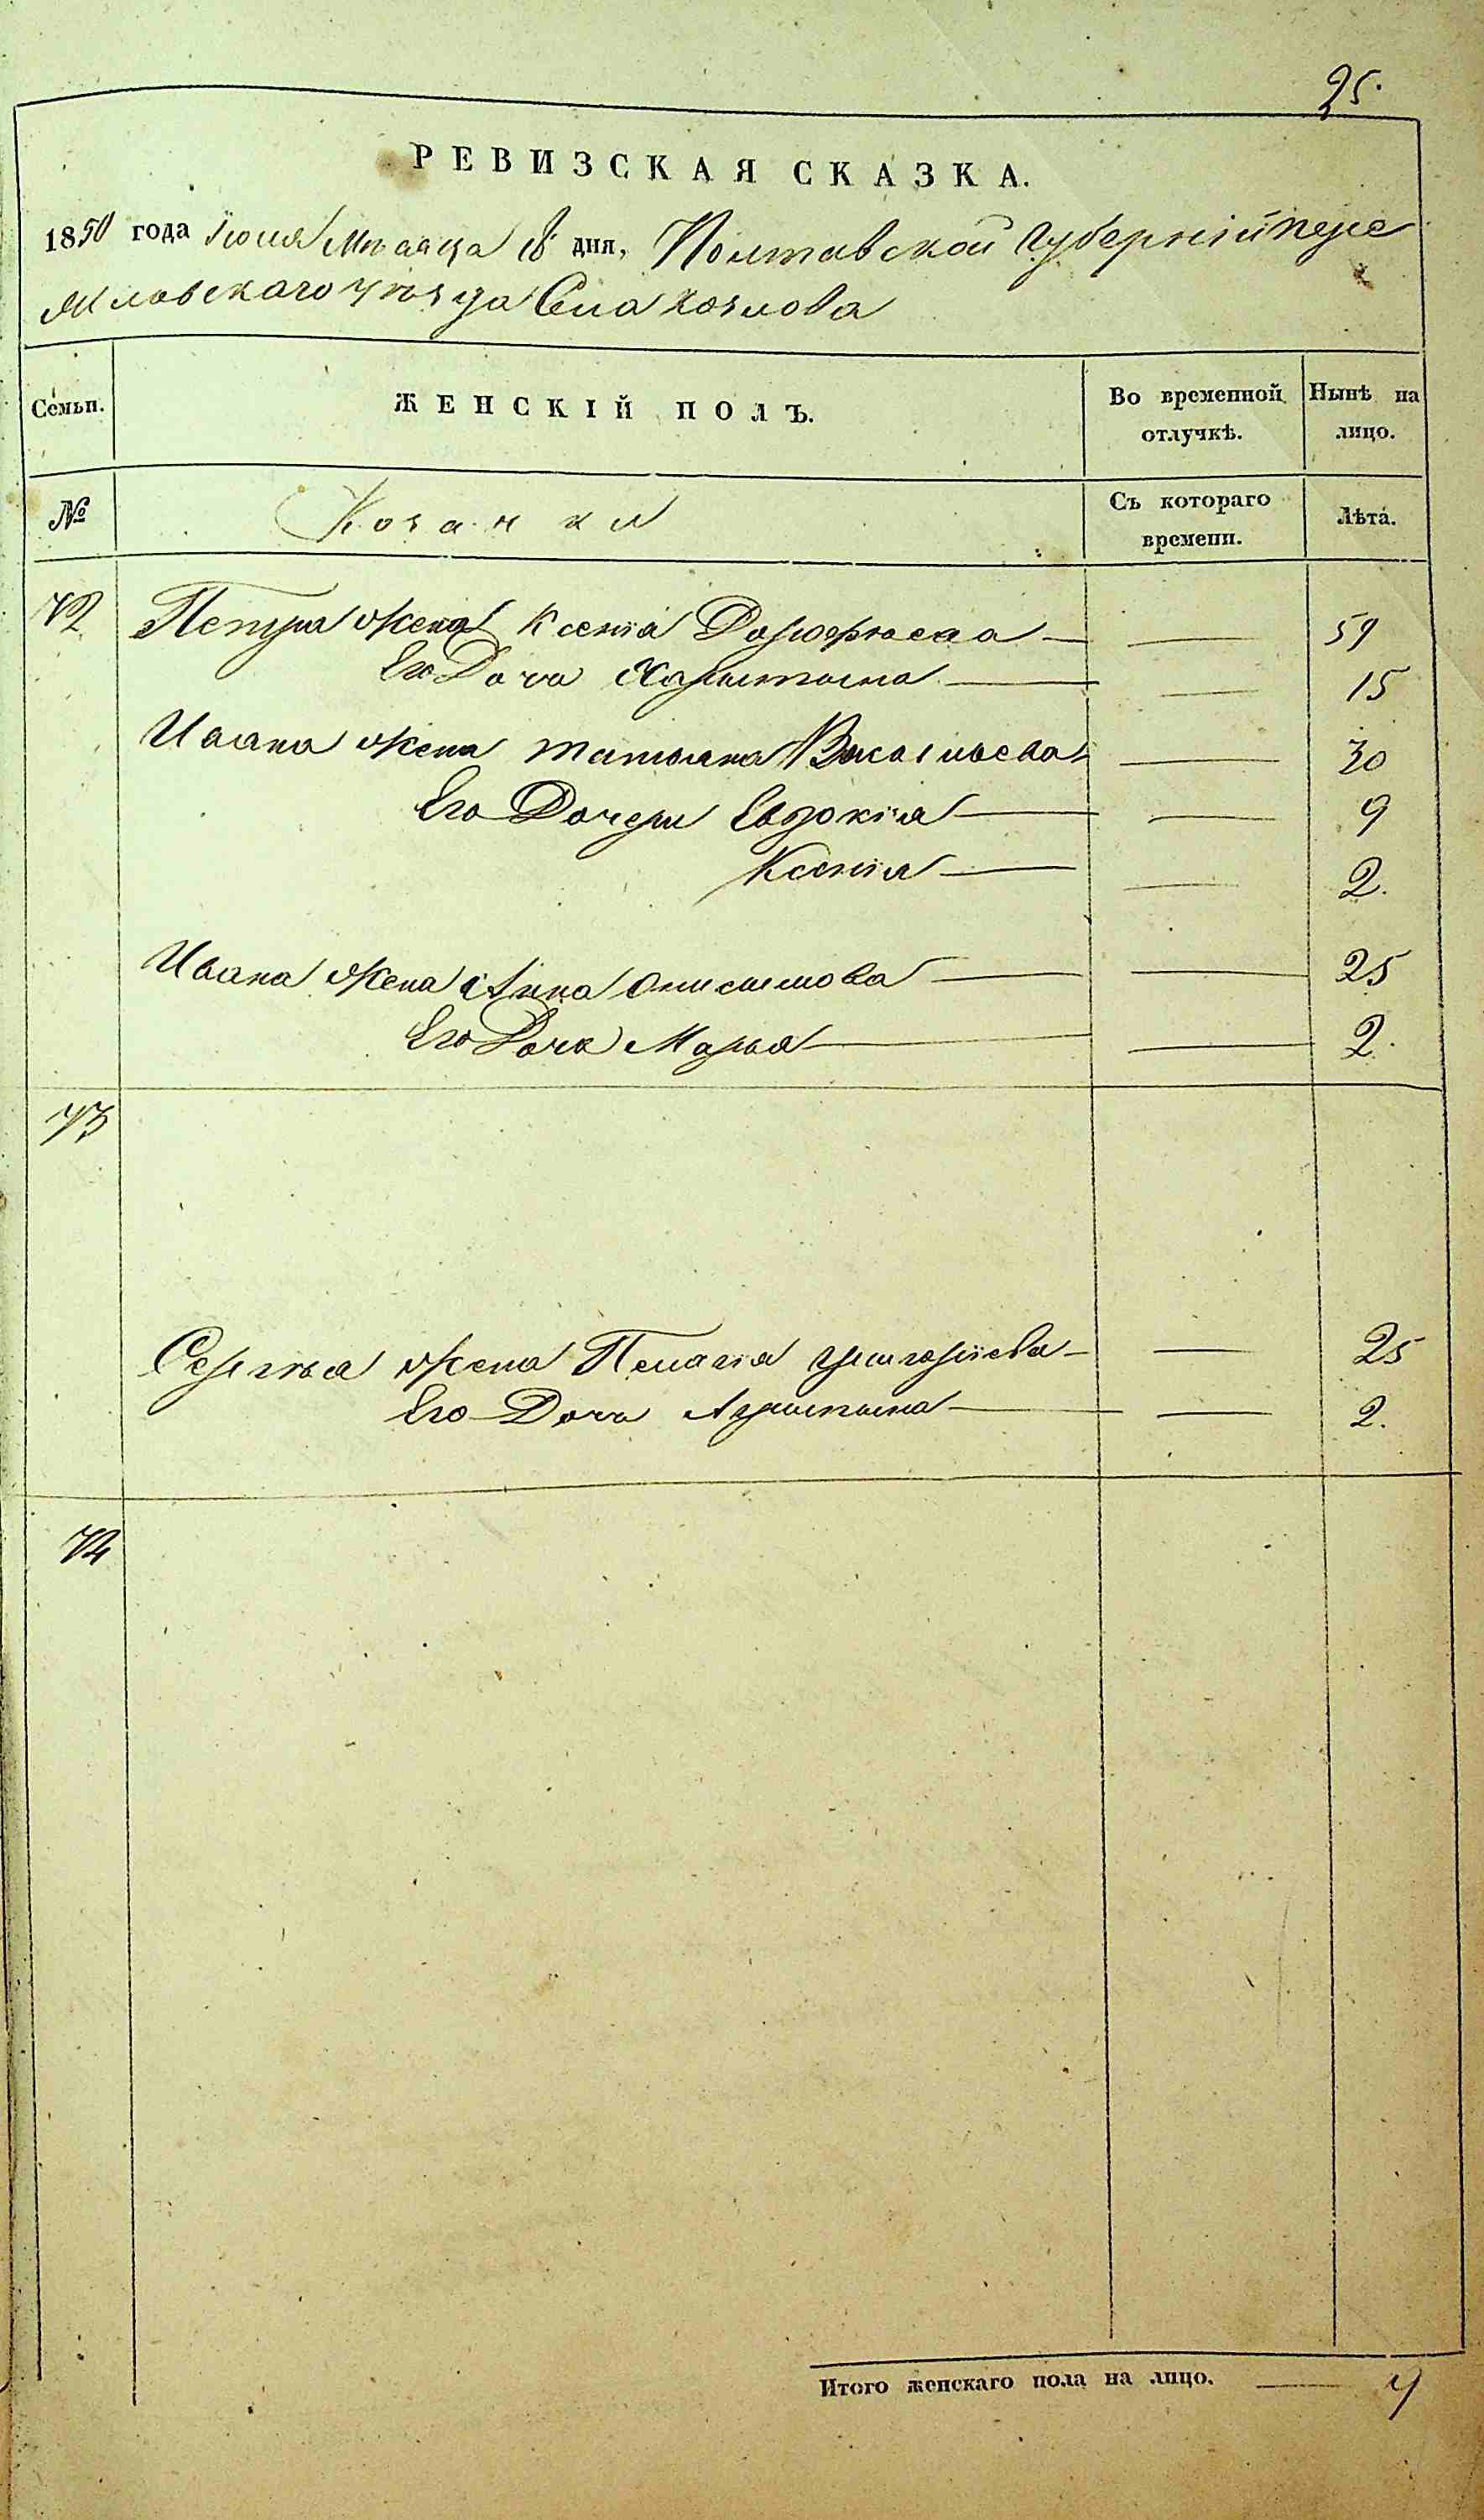 25.
РЕВИЗСКАЯ СКАЗКА.
1850 года Іюня Мѣсяца 8 дня, Полтавской Губерніи Пере
яславского уѣзда Села Козлова
Семьи.
ЖЕНСКІЙ ПОЛЪ.
Во временной отлучкѣ.
Ныне на лицо.
№
Козачки
Съ котораго времени.
Лѣта.
72 Петра жена Ксенія Дорофѣева — — 59
Его Дочь Христина — — 15
Ивана жена Татьяна Васильева — — 30
Его Дочери Евдокія — — 9
Ксенія — — 2.
Ивана жена Анна Онисимова — — 25
Его Дочь Марья — — 2.
73
Сергѣя жена Пелагія Григоріева — — 25
Его Дочь — — 2.
74
Итого женскаго пола на лицо. — 9